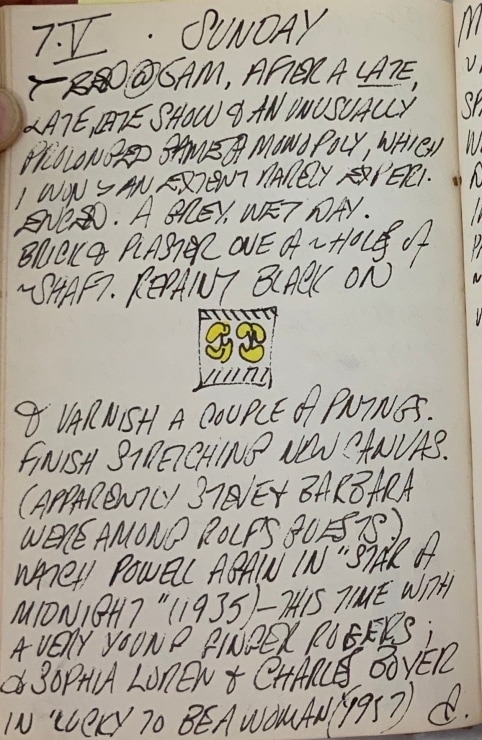 7.V. SUNDAY
BED @ 6AM, AFTER A LATE,
LATE, LATE SHOW & AN UNUSUALLY
PROLONGED GAME OF MONOPOLY, WHICH
I WON TO AN EXTENT RARELY EXPERI-
ENCED. A GREY, WET DAY.
BRICK & PLASTER ONE OF HOLES OF
SHAFT. REPAINT BLACK ON
& VARNISH A COUPLE OF PNTNGS.
FINISH STRETCHING NEW CANVAS.
(APPARENTLY STEVE & BARBARA
WERE AMONG ROLF'S GUESTS)
WATCH POWELL AGAIN IN "STAR OF
MIDNIGHT" (1935) – THIS TIME WITH
A VERY YOUNG GINGER ROGERS;
& SOPHIA LOREN & CHARLES BOYER
IN "LUCKY TO BE A WOMAN" (1957)